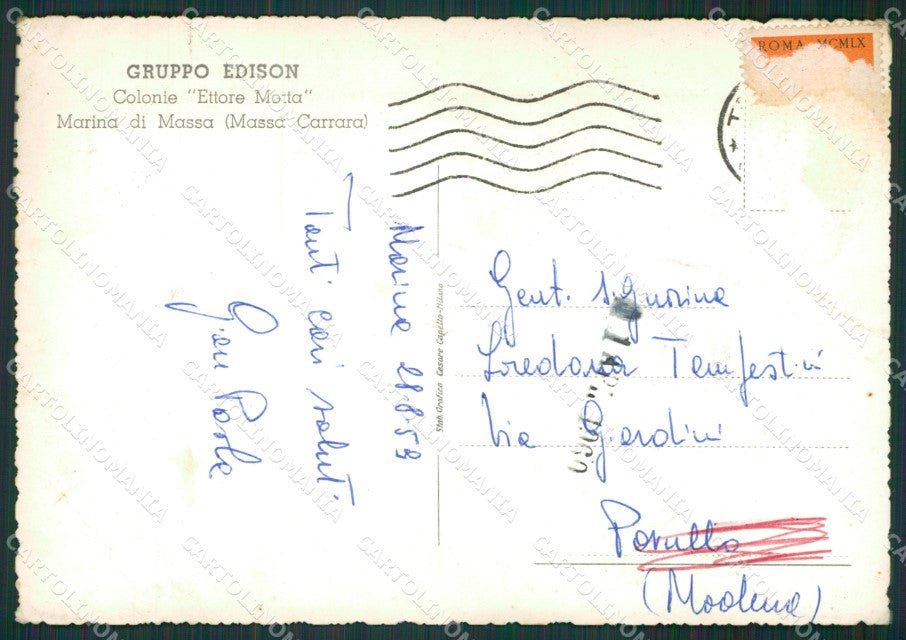 GRUPPO EDISON
Colonie "Ettore Motta"
Marina di Massa (Massa Carrara)
ROMA MCMLX
Marina 28.8.59
Tanti cari saluti
Gian Paola
Stab. Grafico Cesare Capello-Milano
Gent. Signorina
Loredana Tempestini
Via Giardini
Pavullo
(Modena)
CARTOLINOMANIA